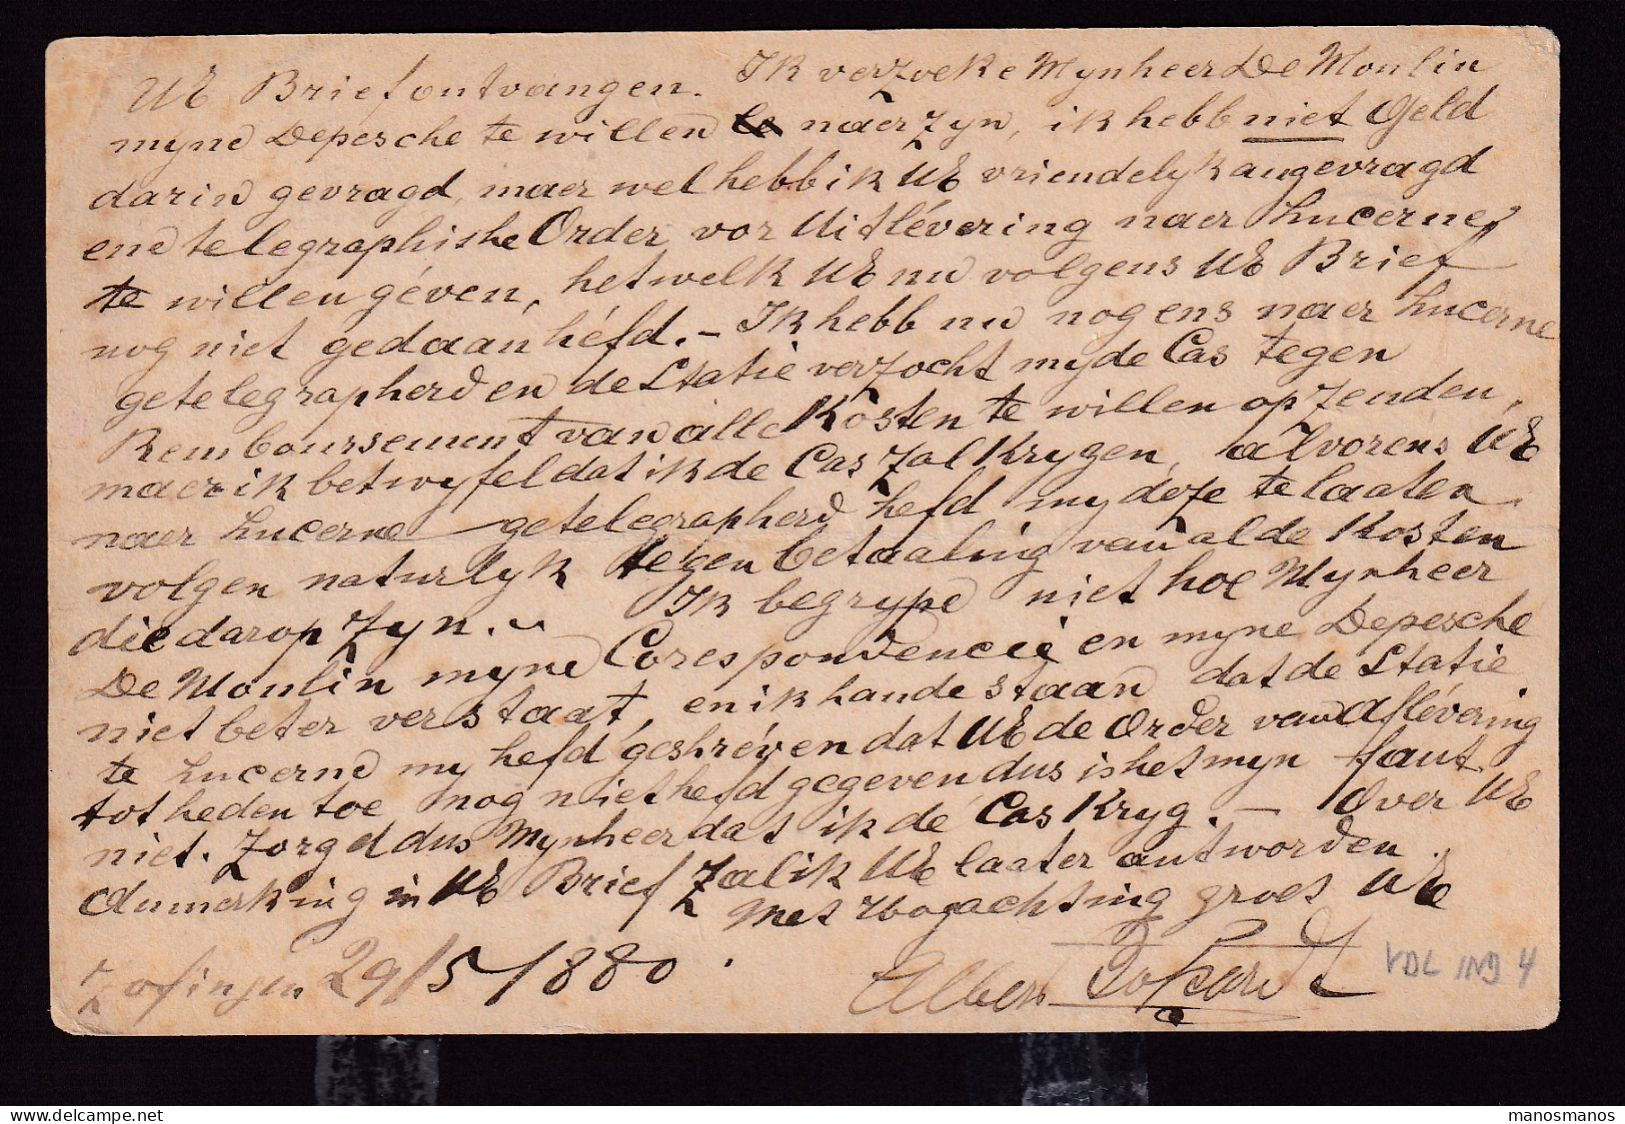 UE Brief ontvangen. Ik verzoeke Mynheer De Moulin
myne Depesche te willen naer zyn, ik hebb niet Geld
darin gevragd, maer wel hebb ik UE vriendelyk angevragd
ene telegraphishe Order vor Uitlévering naer Lucerne
te willen géven, hetwelk UE nu volgens UE Brief
nog niet gedaan héfd. - Ik hebb nu nog ens naer Lucerne
getelegrapherd en de Statie verzocht my de Cas tegen
Remboursement van alle Kosten te willen opzenden,
maer ik betwyfel dat ik de Cas zal Krygen, alvorens UE
naer Lucerne getelegrapherd hefd my deze te laaten
volgen naturlyk tegen betaaling van al de Kosten
die darop zyn. Ik begrype niet hoe Mynheer
De Moulin myne Corespondencie en myne Depesche
niet beter verstaat, en ik hande staan dat de Statie
te Lucerne my hefd geshréven dat UE de Order van Aflévering
tot heden toe nog niet hefd gegeven dus is het myn faut
niet. Zorgd dus Mynheer dat ik de Cas Kryg. - Over UE
Anmerking in UE Brief zal ik UE laater antworden.
Met hogachting groet UE
Zofingen 29/5/1880.
Albert
VDL IND 4
manosmanos